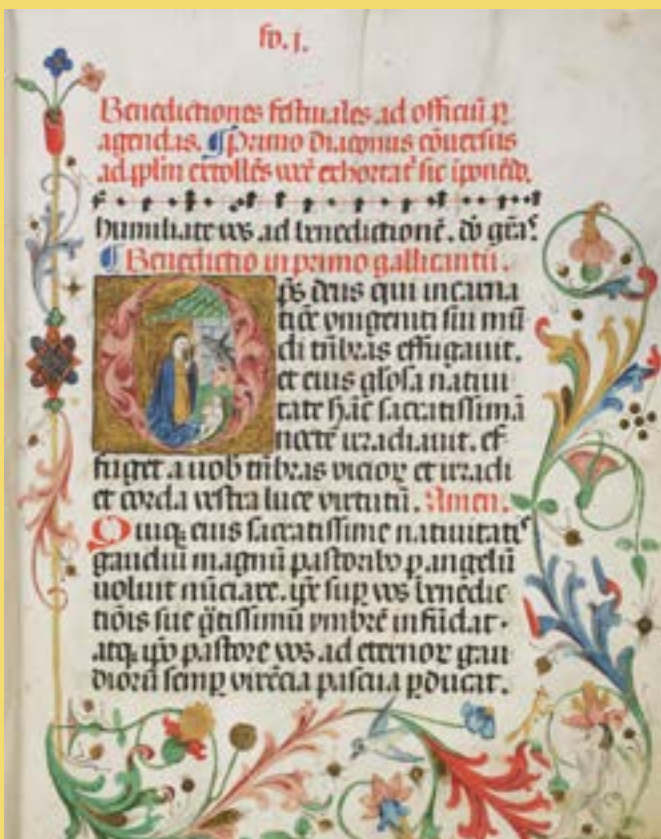 fo. j.
Benedictiones festiuales ad officiū p̲
agendas. ¶Primo diaconus cōuersus
ad pplm exortat' sic īponēdo.
humiliate vos ad benedictionē. dō grās
¶Benedictio in primo gallicantu.
Ops deus qui incarna
tiōe vnigeniti sui mū
di tñbras effugauit.
et eius glosa natiui
tate hāc sacratissimā
noctē irradiauit. ef
fuget a uob tñbras vicioꝝ et irradi
et corda vestra luce virtutū. Amen.
Quiqꝫ eius sacratissime natiuitatꝭ
gaudiū magnū pastoribꝰ p angelū
uoluit nūciare. ipe sup vos benedic
tiōis sue gtissimū ymbrē infūdat.
atqꝫ ipo pastore vos ad eternoꝝ gau
dioꝝ semp virēcia pascua pducat.